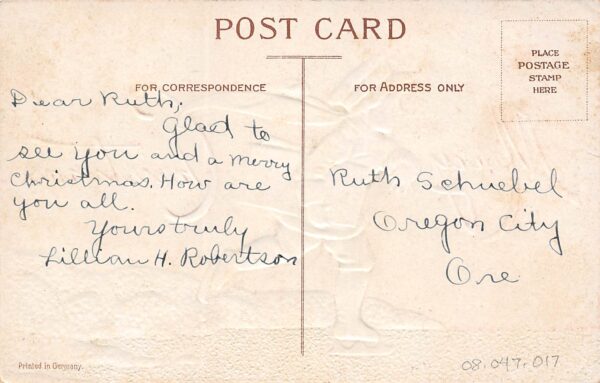 POST CARD
FOR CORRESPONDENCE
FOR ADDRESS ONLY
PLACE
POSTAGE
STAMP
HERE
Dear Ruth,
Glad to
see you and a merry
Christmas. How are
you all.
Yours truly
Lillian H. Robertson
Ruth Schuebel
Oregon City
Ore
Printed in Germany.
08.047.017